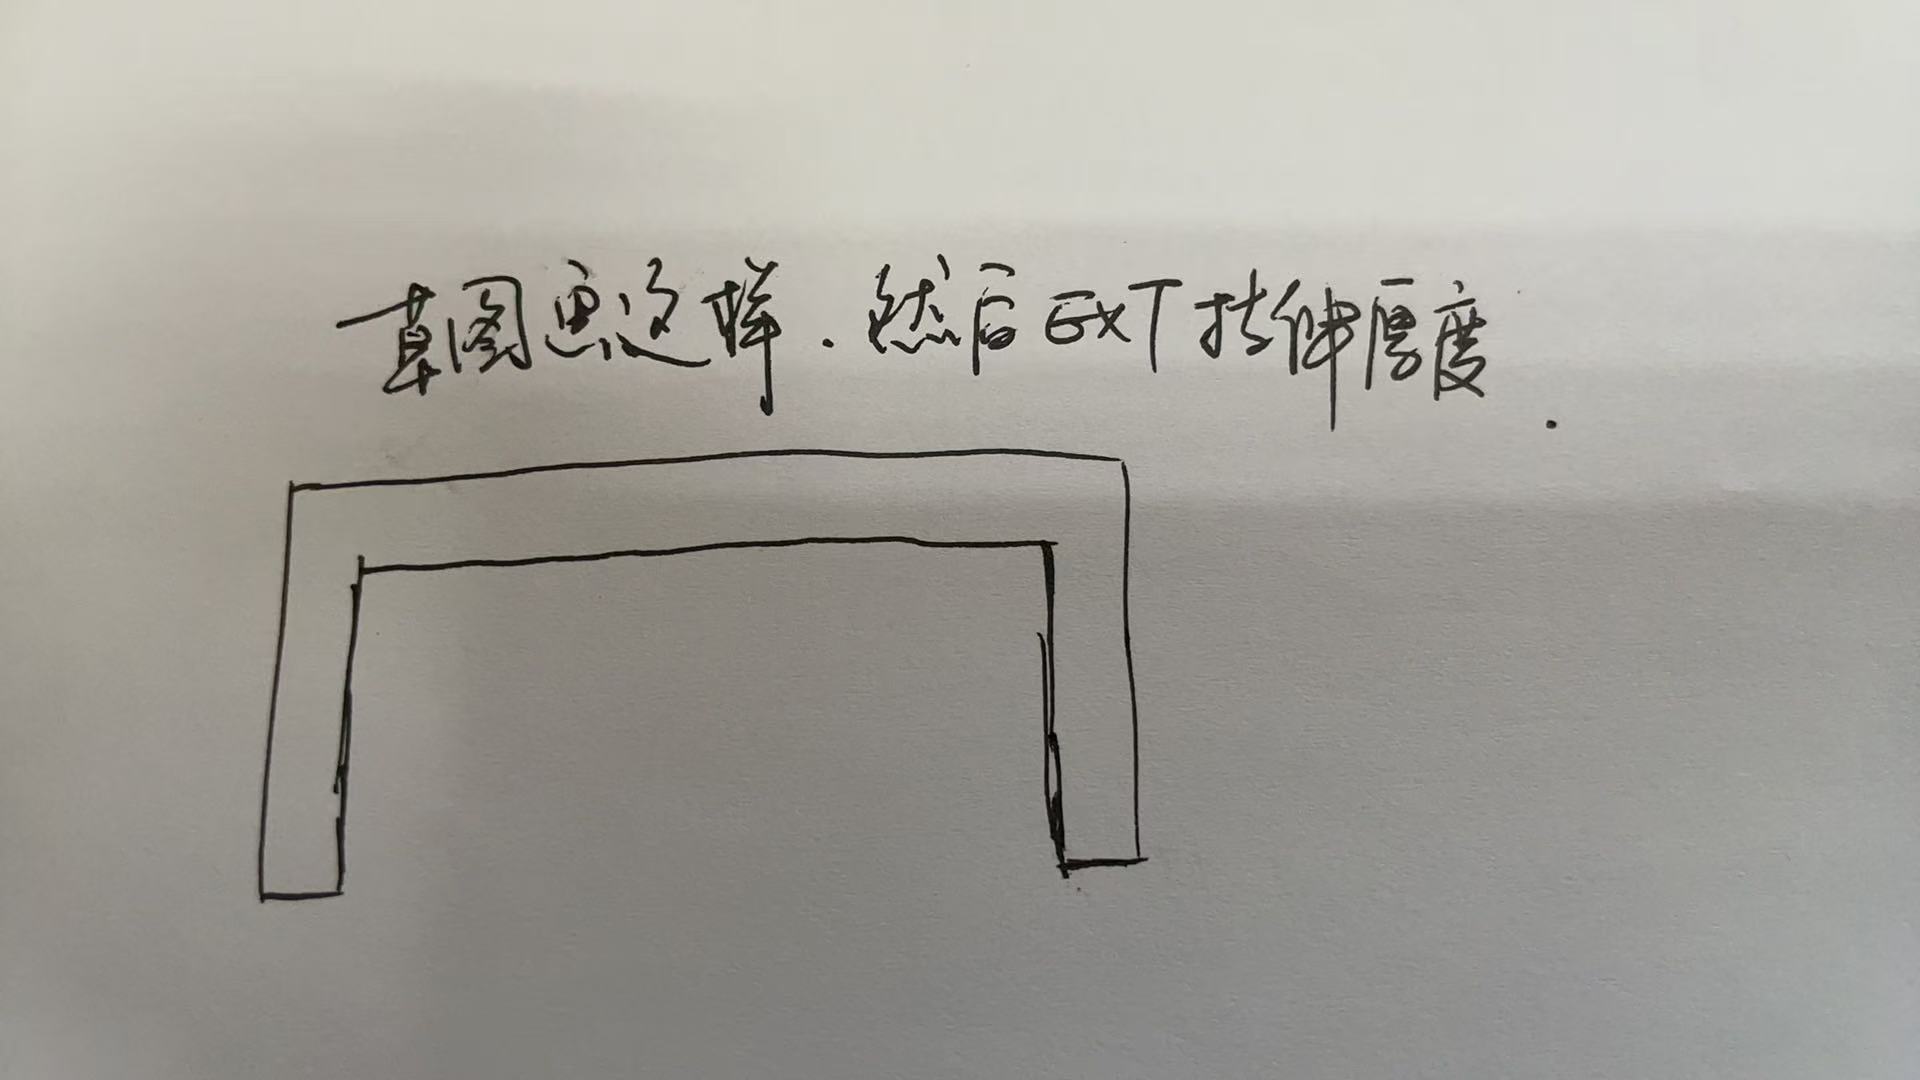 草图思这样.然后EXT拉伸厚度.